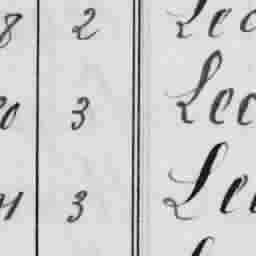 8 2 Lec
20 3 Lec
21 3 Lec